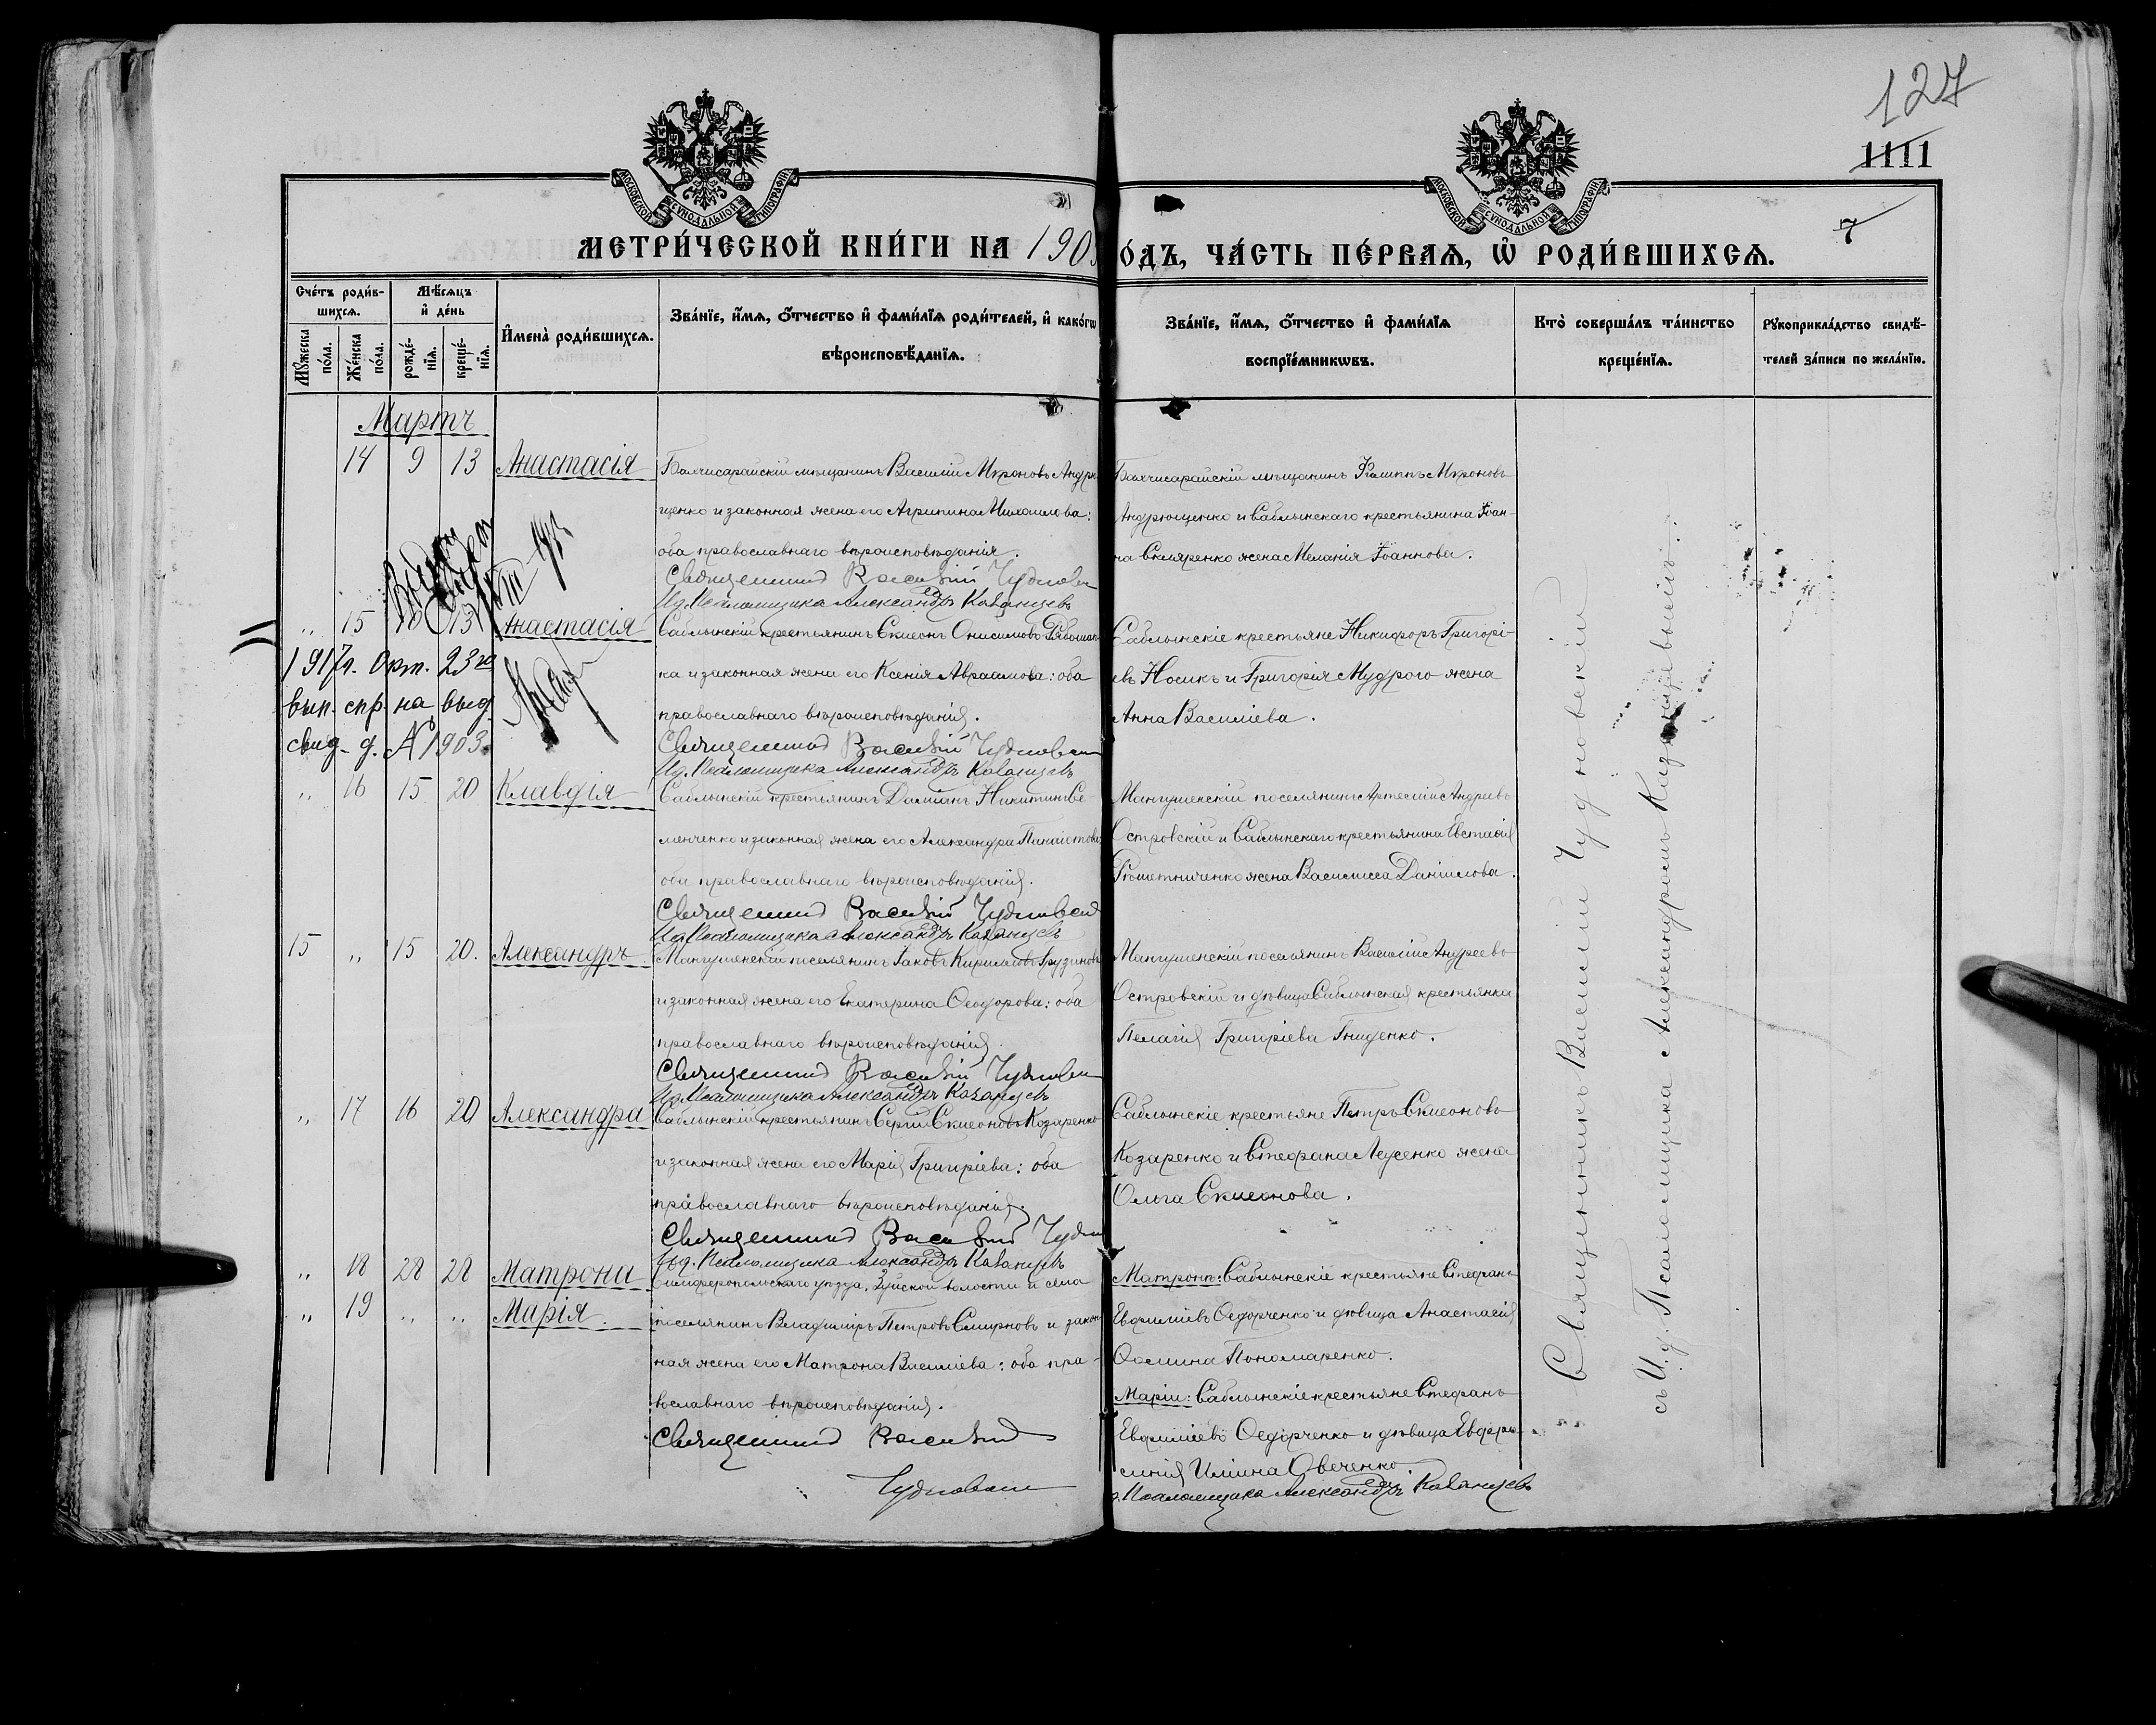 127
1111
7
МОСКОВСКОЙ СѴНОДАЛЬНОЙ ТИПОГРАФІИ
МОСКОВСКОЙ СѴНОДАЛЬНОЙ ТИПОГРАФІИ
МЕТРИ́ЧЕСКОЙ КНИ́ГИ НА 190
О́ДЪ, ЧА́СТЬ ПЕ́РВАѦ, Ѡ РОДИ́ВШИХСѦ.
Сче́тъ роди́в-
шихсѧ.
Мꙋжеска по́ла.
Же́нска по́ла.
Мѣ́сѧцъ
и҆ де́нь
рожде́-
нїѧ.
креще́-
нїѧ.
И҆мена̀ роди́вшихсѧ.
Зва́нїе, и҆́мѧ, ѻ҆́тчество и҆ фами́лїѧ роди́телей, и҆ како́гѡ
вѣроисповѣ́данїѧ.
Зва́нїе, и҆́мѧ, ѻ҆́тчество и҆ фами́лїѧ
воспрїе́мникѡвъ.
Кто̀ соверша́лъ та́инство
креще́нїѧ.
Рꙋкоприкла́дство свидѣ́-
телей за́писи по жела́нїю.
Мартъ
14 9 13 Анастасія
Бахчисарайскій мѣщанинъ Василій Мироновъ Андрю
щенко и законная жена его Агрипина Михаилова:
оба православнаго вѣроисповѣданія.
Священникъ Василій Чудновскій
Ид. Псаломщика Александръ Казанцевъ
Бахчисарайскій мѣщанинъ Филиппъ Мироновъ
Андрющенко и Саблынскаго крестьянина Іоан-
на Скляренко жена Меланія Іоаннова.
„ 15 10 13 Анастасія
Саблынскій крестьянинъ Симеонъ Онисимовъ Рябошап
ка и законная жена его Ксенія Авраамова: оба
православнаго вѣроисповѣданія.
Священникъ Василій Чудновскій
Ид. Псаломщика Александръ Казанцевъ
Саблынскіе крестьяне Никифоръ Григорі-
евъ Носикъ и Григорія Мудрого жена
Анна Василіева.
1917 г. Окт. 23 го
вып. спр. на выд.
свид. д. № 1903.
„ 16 15 20 Клавдія
Саблынскій крестьянинъ Даміанъ Никитинъ Се-
менченко и законная жена его Александра
оба православнаго вѣроисповѣданія.
Священникъ Василій Чудновскій
Ид. Псаломщика Александръ Казанцевъ
Мангушскій поселянинъ Артемій Андреевъ
Островскій и Саблынскаго крестьянина Евстафія
Решетниченко жена Василисса Даніилова.
15 „ 15 20. Александръ
Мангушскій поселянинъ Іаковъ Кирилловъ Грузиновъ
и законная жена его Екатерина Ѳеодорова: оба
православнаго вѣроисповѣданія.
Священникъ Василій Чудновскій
Ид. Псаломщика Александръ Казанцевъ
Мангушскій поселянинъ Василій Андреевъ
Островскій и дѣвица Саблынская крестьянка
Пелагія Григоріева Гниденко.
„ 17 16 20 Александра
Саблынскій крестьянинъ Сергій Симеоновъ Козаренко
и законная жена его Марія Григоріева: оба
православнаго вѣроисповѣданія.
Священникъ Василій Чудн
Ид. Псаломщика Александръ Казанцевъ
Саблынскіе крестьяне Петръ Симеоновъ
Козаренко и Стефана Леусенко жена
Ольга Симеонова.
„ 18 28 28 Матрона
„ 19 „ „ Марія.
Симферопольскаго уѣзда, Зуйской волости и села
поселянинъ Владиміръ Петровъ Смирновъ и закон
ная жена его Матрона Василіева: оба пра-
вославнаго вѣроисповѣданія.
Священникъ Василій
Чудновскій
Матроны: Саблынскіе крестьяне Стефанъ
Евфиміевъ Ѳедорченко и дѣвица Анастасія
Ѳомина Пономаренко.
Маріи: Саблынскіе крестьяне Стефанъ
Евфиміевъ Ѳедорченко и дѣвица Евфро-
синія Иліина Овеченко
Псаломщика Александръ Казанцевъ
Священникъ Василій Чудновскій
съ И. д. Псаломщика Александромъ Казанцевымъ.